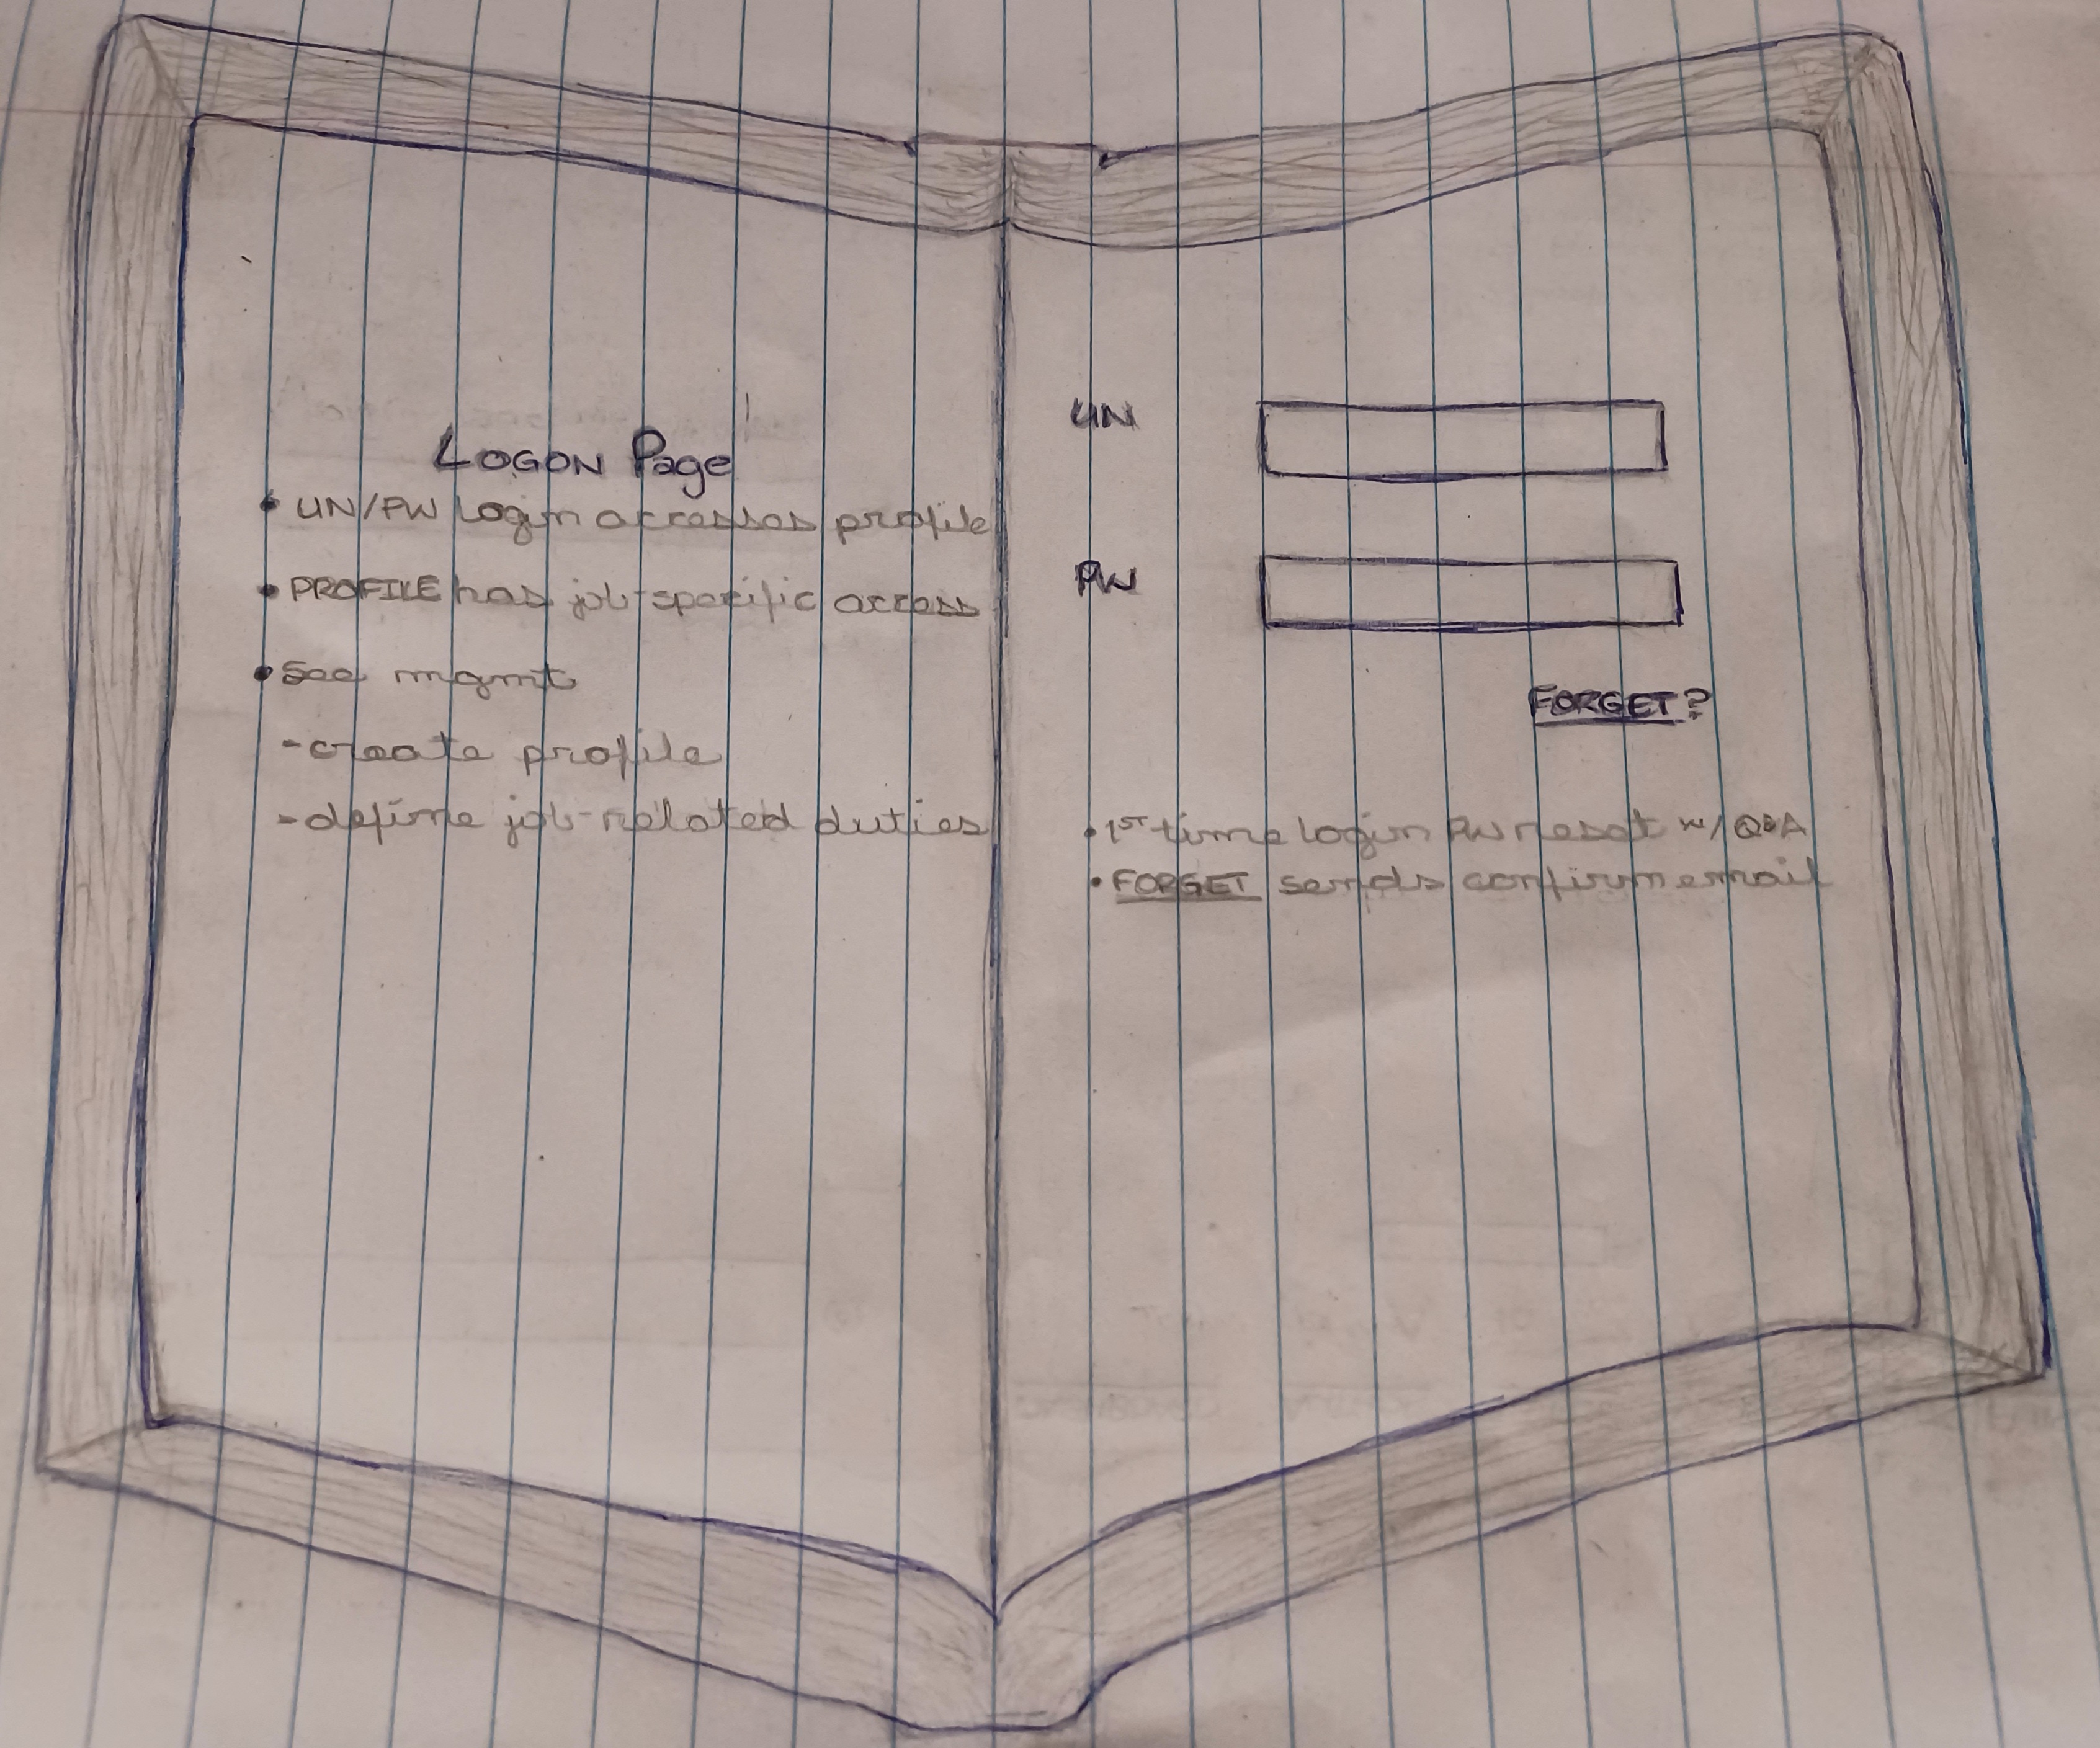 LOGON Page
• UN/PW login accesses profile
• PROFILE has job-specific access
• See mgmt
- create profile
- define job-related duties
UN
PW
FORGET?
• 1ST time login PW reset w/ Q&A
• FORGET sends confirm email